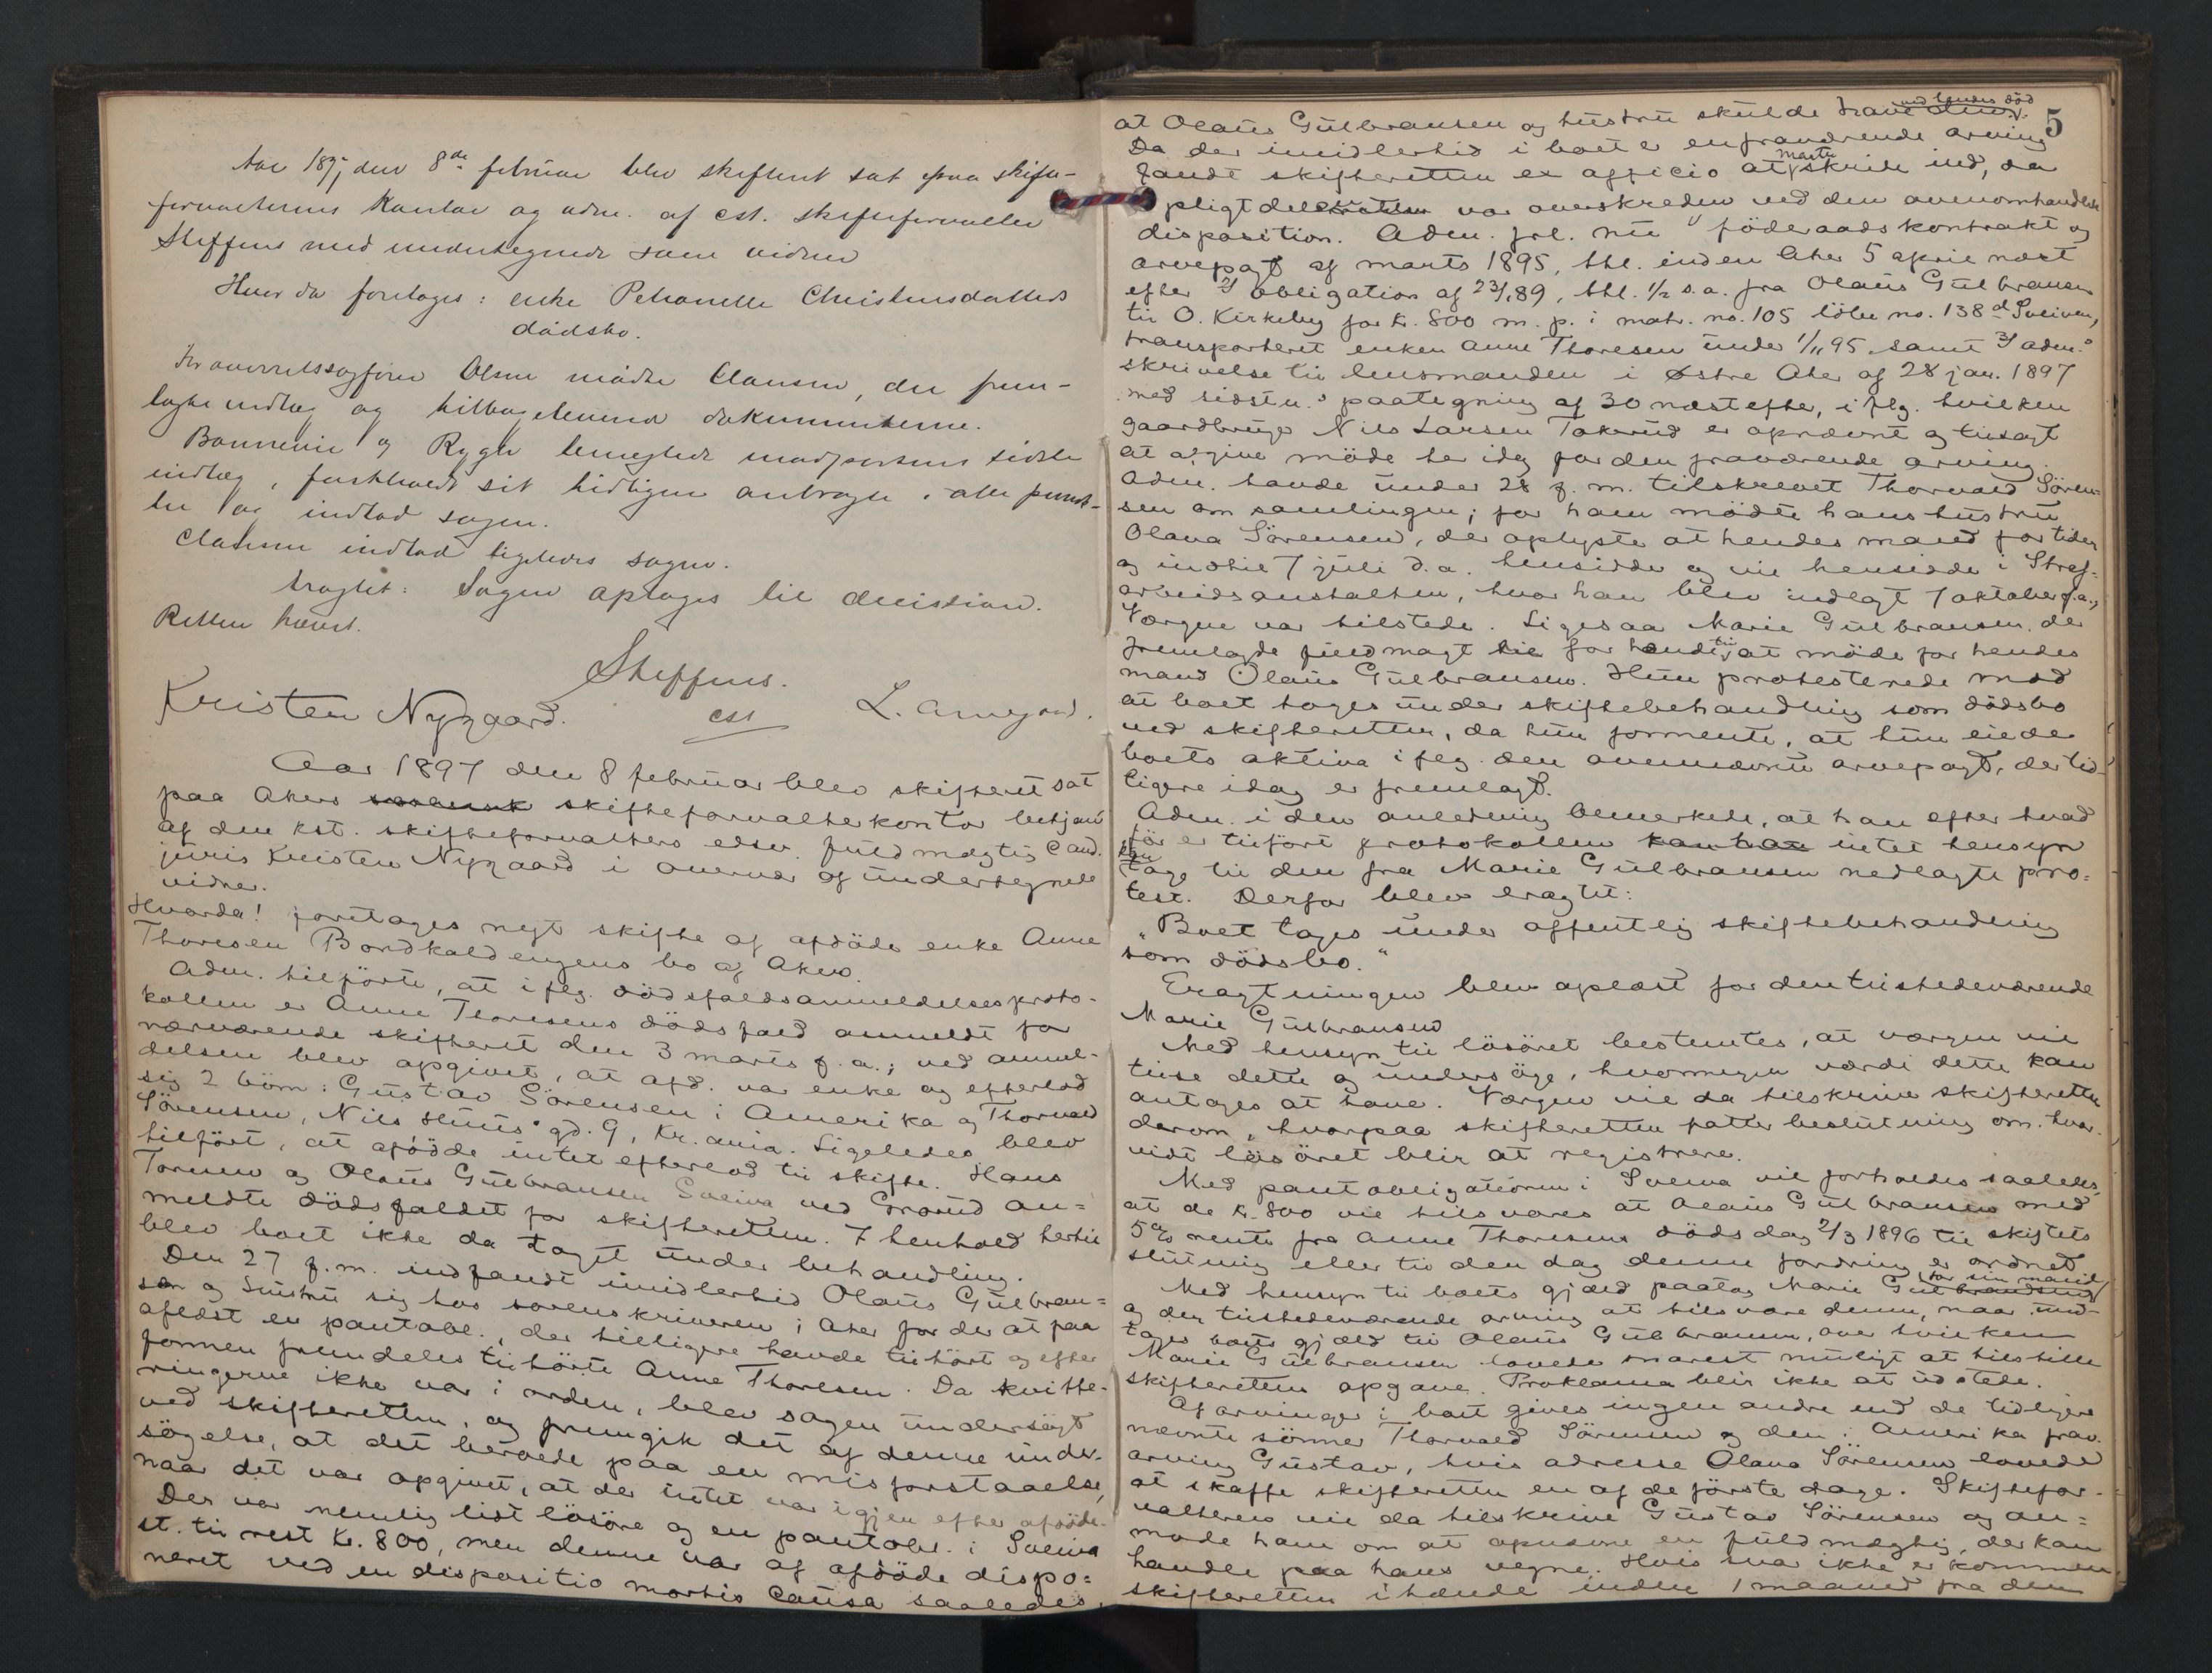 Aar 1897 den 8de februar blev skifteret sat paa skifte-
forvalterens Kontor og adm. af cst. skifteforvalter
Steffens med undertegnede som vidner
Hvor da foretoges: enke Petronelle Christensdatters
dødsbo.
For overretssagfører Olsen mødte Clausen, der frem-
lagde indlæg og tilbageleverede dokumenterne.
Bonnevie og Rygh benegtede modpartens sidste
indlæg, fastholdt sit tidligere antragte i alle punk-
ter og indlod sagen.
Clausen indlod ligeledes sagen.
Eragtet: Sagen optages til decision.
Retten hævet.
Steffens.
cst
Kristen Nygaard.
Aar 1897 den 8 februar blev skifteret sat
paa Akers skifteforvalterkontor betjent
af den kst. skifteforvalters edsv. fuldmægtig Cand.
juris Kristen Nygaard i overvær af undertegnede
vidner.
Hvorda! foretages nyt skifte af afdøde enke Anne
Thoresen Bondkaldengens bo af Aker.
Adm. tilførte, at ifølg. dødsfaldsanmeldelsesproto-
kollen er Anne Thoresens dødsfald anmeldt for
nærværende skifteret den 3 marts f. a.; ved anmel-
delsen blev opgivet, at afd. var enke og efterlod
sig 2 børn: Gustav Sørensen i Amerika og Thorvald
Sørensen, Nils Huus' gd. 9, Kr.ania. Ligeledes blev
tilført, at afdøde intet efterlod til skifte. Hans
Torsen og Olaus Gulbransen Sveiva ved Grorud an=
meldte dødsfaldet for skifteretten. I henhold hertil
blev boet ikke da taget under behandling.
Den 27 f. m. indfandt imidlertid Olaus Gulbran=
sen og hustru sig hos sorenskriveren i Aker for der at faa
aflæst en pantobl., der tidligere havde tilhørt og efter
formen fremdeles tilhørte Anne Thoresen. Da kvitte-
ringerne ikke var i orden, blev sagen undersøgt
ved skifteretten, og fremgik det af denne under-
søgelse, at det beroede paa en misforstaaelse,
naar det var opgivet, at der intet var igjen efter afdøde.
Der var nemlig lidt løsøre og en pantobl. i Sveiva
st. til rest Kr. 800, men denne var af afdøde dispo=
neret ved en dispositio mortis causa saaledes,
5
at Olaus Gulbransen og hustru skulde have den ved hendes død
Da der imidlertid i boet er en fraværende arving
fandt skifteretten ex officio at maatte skride ind, da
pligtdelen var overskreden ved den ovenomhandlede
disposition. Adm. frl. nu føderaadskontrakt og
arvepagt af marts 1895, thl. inden Aker 5 april næst
efter 2/ obligation af 23/1 89, thl. 1/2 s.a. fra Olaus Gulbransen
til O. Kirkeby for kr. 800 m. p. i matr. no. 105 løbe no. 138 d Sveiven,
transporteret enken Anne Thoresen under 1/11 95 samt 3/ adm.s
skrivelse til lensmanden i Østre Aker af 28 jan. 1897
med sidstn.s paategning af 30 næstefter, i flg. hvilken
gaardbruger Nils Larsen Tokerud er opnævnt og tilsagt
at afgive møde her idag for den fraværende arving.
Adm. havde under 28 f. m. tilskrevet Thorvald Søren=
sen om samlingen; for ham mødte hans hustru
Olava Sørensen, der oplyste at hendes mand for tiden
og indtil 7 juli d. a. hensidder og vil hensidde i Straf-
arbeidsanstalten, hvor han blev indlagt 7 oktober f.a.,
Værgen var tilstede. Ligesaa Marie Gulbransen der
fremlagde fuldmagt for hende til at møde for hendes
mand Olaus Gulbransen. Hun protesterede mod
at boet toges under skiftebehandling som dødsbo
ved skifteretten, da hun formente, at hun eiede
boets aktiva i flg. den ovennævnte arvepagt, der tid-
ligere idag er fremlagt.
Adm. i den anledning bemerkede, at han efter hvad
før er tilført protokollen intet hensyn
kan tage til den fra Marie Gulbransen nedlagte pro=
test. Derfor blev eragtet:
"Boet tages under offentlig skiftebehandling
som dødsbo."
Eragtningen blev oplæst for den tilstedeværende
Marie Gulbransen
Med hensyn til løsøret bestemtes, at værgen vil
tilse dette og undersøge, hvormegen værdi dette kan
antages at have. Værgen vil da tilskrive skifteretten
derom, hvorpaa skifteretten fatter beslutning om hvor-
vidt løsøret blir at registrere.
Med pantobligationen i Sveiva vil forholdes saaledes,
at de kr. 800 vil tilsvares at Olaus Gulbransen med
5% rente fra Anne Thoresens dødsdag 2/3 1896 til skiftets
slutning eller til den dag denne fordring er ordnet
Med hensyn til boets gjæld paatog Marie Gulbrandsen for sin mand
og den tilstedeværende arving at tilsvare denne, naar und-
tages boets gjæld til Olaus Gulbransen, over hvilken
Marie Gulbransen lovede snarest muligt at tilstille
skifteretten opgave. Proklama blir ikke at udstede.
Af arvinger i boet gives ingen andre end de tidligere
nævnte sønner Thorvald Sørensen og den i Amerika frav.
arving Gustav, hvis adresse Olava Sørensen lovede
at skaffe skifteretten en af de første dage. Skiftefor-
valteren vil da tilskrive Gustav Sørensen og an=
mode ham om at opnævne en fuldmægtig, der kan
handle paa hans vegne. Hvis svar ikke er kommen
skifteretten ihænde inden 1 maaned fra den